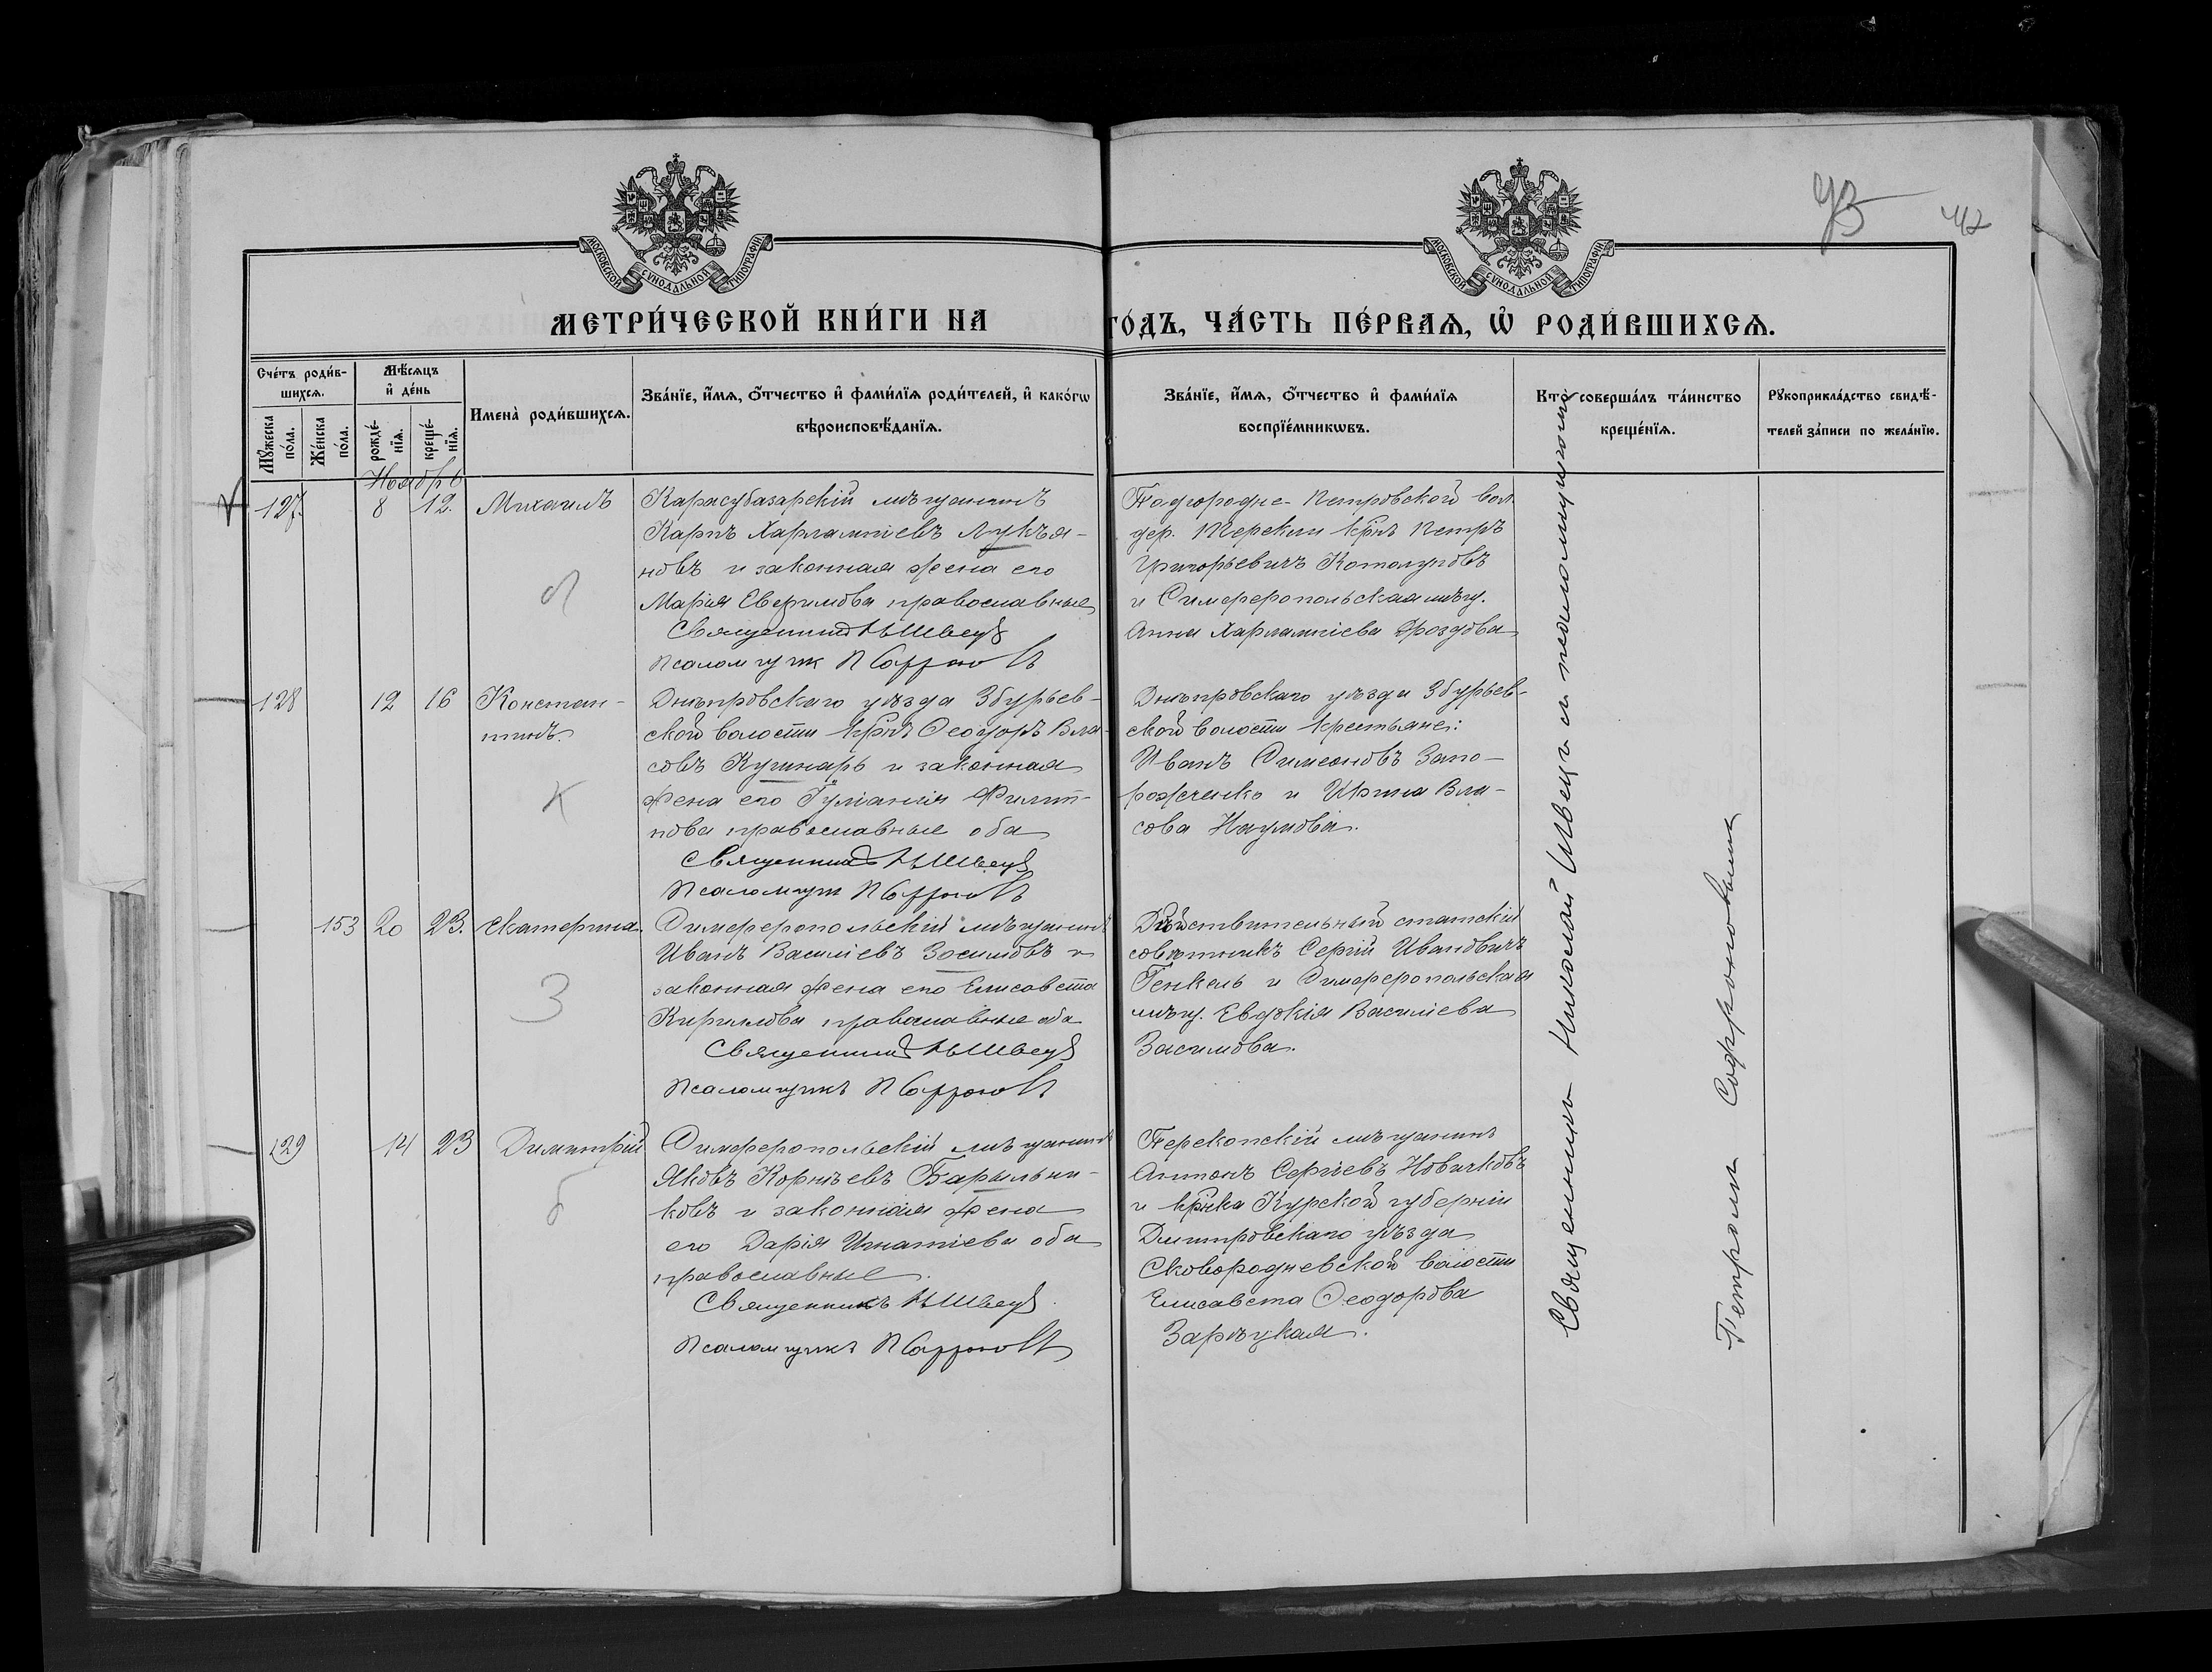 93 42
МОСКОВСКОЙ СУНОДАЛЬНОЙ ТИПОГРАФІИ
МОСКОВСКОЙ СУНОДАЛЬНОЙ ТИПОГРАФІИ
МЕТРИ́ЧЕСКОЙ КНИ́ГИ НА ГО́ДЪ, ЧА́СТЬ ПЕ́РВАѦ, Ѡ҆ РОДИ́ВШИХСѦ.
Сче́тъ роди́в-
шихсѧ.
Мꙋ́жеска по́ла.
Же́нска по́ла.
Мѣ́сѧцъ
и҆ де́нь
рожде́-
нїѧ.
креще́-
нїѧ.
И҆мена̀ роди́вшихсѧ.
Зва́нїе, и҆́мѧ, ѻ҆́тчество и҆ фами́лїѧ роди́телей, и҆ како́гѡ
вѣроисповѣ́данїѧ.
Зва́нїе, и҆́мѧ, ѻ҆́тчество и҆ фами́лїѧ
воспрїе́мникѡвъ.
Кто̀ соверша́лъ та́инство
креще́нїѧ.
Рꙋкоприкла́дство свидѣ́-
телей за́писи по жела́нїю.
Ноябрь
127. 8 12. Михаилъ
Карасубазарскій мѣщанинъ
Карпъ Харлампіевъ Лукья-
новъ и законная жена его
Марія Евфимова православные
Священникъ Н Швецъ
Псаломщик П Софроновъ
Подгородне-Петровской вол.
дер. Терекли крнъ Петръ
Григорьевичъ Котолуповъ
и Симферопольская мѣщ.
Анна Харлампіева Дроздова
л
128 12 16 Констан-
тинъ.
Днѣпровскаго уѣзда Збурьев-
ской волости крнъ Ѳеодоръ Вла-
совъ Кушнарь и законная
жена его Гуліанія Филип-
пова православные оба
Священникъ Н Швецъ
Псаломщик П Софроновъ
Днѣпровскаго уѣзда Збурьев-
ской волости крестьяне:
Иванъ Симеоновъ Запо-
рожченко и Ирина Вла-
сова Наумова.
к
153 20 23. Екатерина.
Симферопольскій мѣщанинъ
Иванъ Василіевъ Зосимовъ и
законная жена его Елисавета
Кириллова православные оба
Священникъ Н Швецъ
Псаломщикъ П Софроновъ
Дѣйствительный статскій
совѣтникъ Сергій Ивановичъ
Генкель и Симферопольская
мѣщ. Евдокія Василіева
Засимова.
З
129 14 23 Димитрій
Симферопольскій мѣщанинъ
Яковъ Корнѣевъ Барыльни-
ковъ и законная жена
его Дарія Игнатіева оба
православные.
Священникъ Н Швецъ.
Псаломщикъ П Софроновъ
Перекопскій мѣщанинъ
Антонъ Сергіевъ Новичковъ
и крнка Курской губерніи
Дмитровскаго уѣзда
Сковородневской волости
Елисавета Ѳеодорова
Зарѣцкая.
б
Священникъ Николай Швецъ и псаломщикомъ
Петромъ Софроновымъ